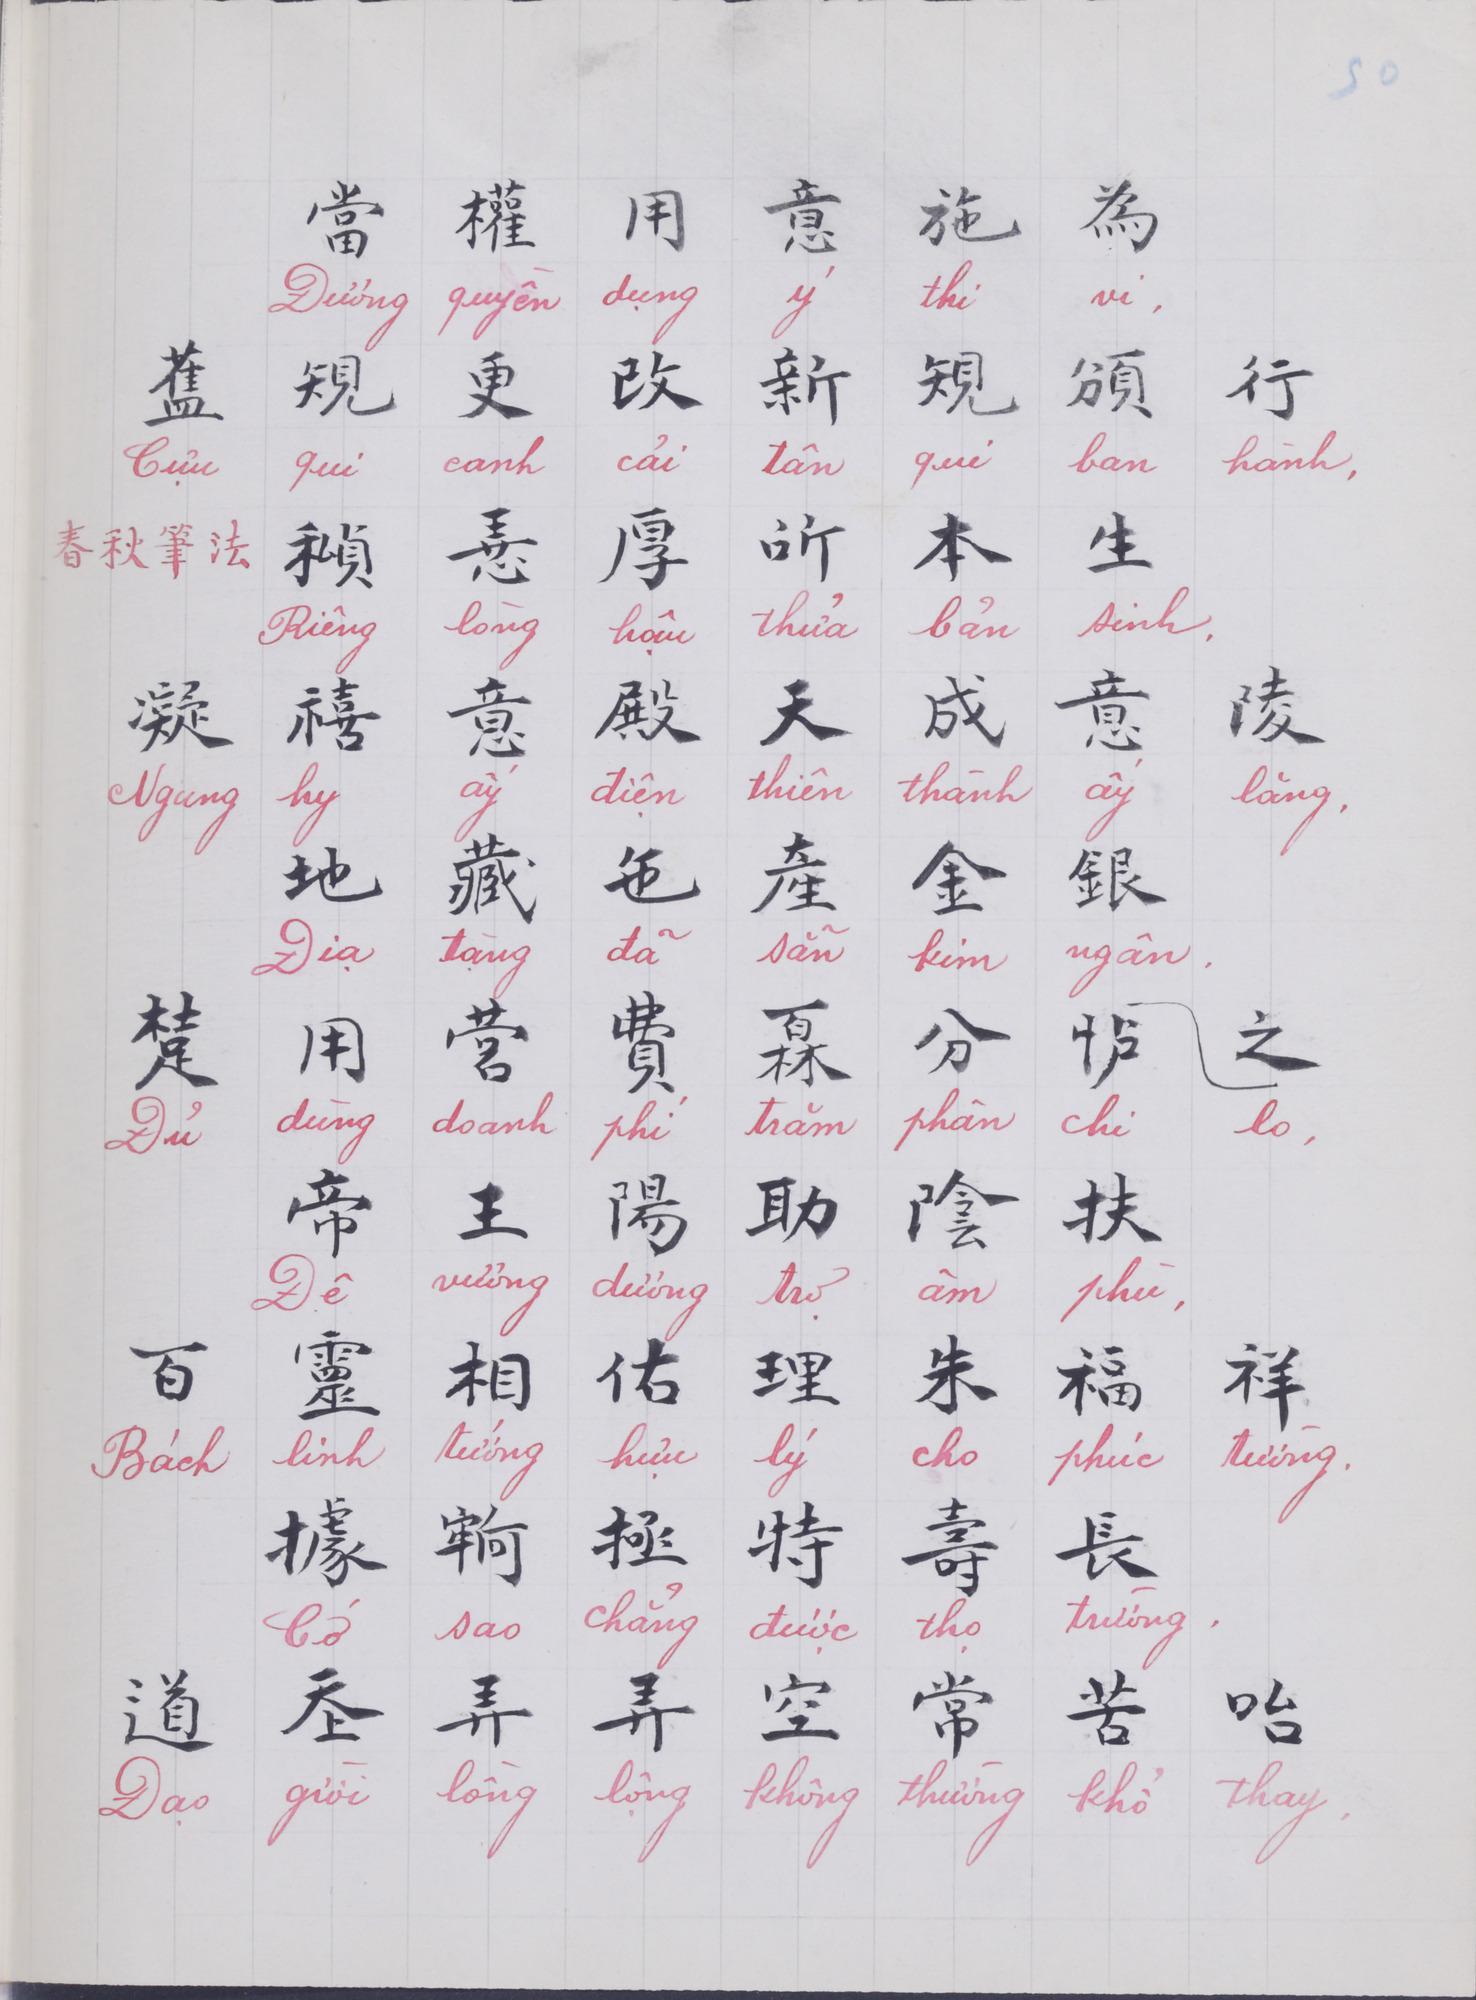 50
當 權 用 意 施 為
Đương quyền dụng ý thi vi,
舊 規 更 改 新 規 頒 行
Cựu qui canh cải tân qui ban hành,
春秋筆法
厚 所 本 生
Riêng lòng hậu thửa bản sinh,
凝 禧 意 殿 天 成 意 陵
Ngưng hy ấy điện thiên thành ấy lăng,
地 藏 㐌 產 金 銀
Địa tàng đã sẵn kim ngân,
用 营 費 分 之
Đủ dùng doanh phí trăm phần chi lo,
帝 王 陽 助 陰 扶
Đế vương dương trợ âm phù,
百 靈 相 佑 理 朱 福 祥
Bách linh tương hựu lý cho phúc tường.
據 極 特 壽 長
Cớ sao chẳng được thọ trường,
道 𡗶 弄 弄 空 常 苦 咍
Đạo giời lồng lộng không thường khổ thay,